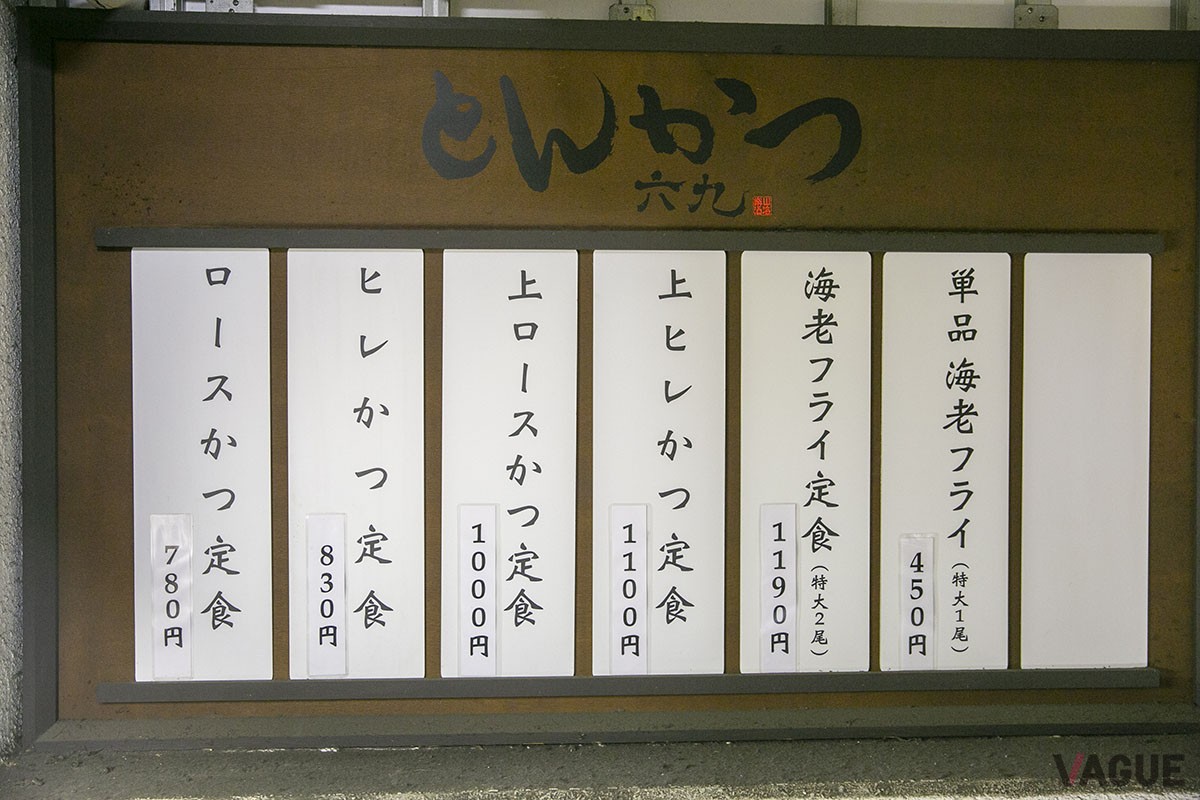 とんかつ
六九
ロースかつ定食
780円
ヒレかつ定食
830円
上ロースかつ定食
1000円
上ヒレかつ定食
1100円
海老フライ定食(特大2尾)
1190円
単品海老フライ(特大1尾)
450円
VAGUE